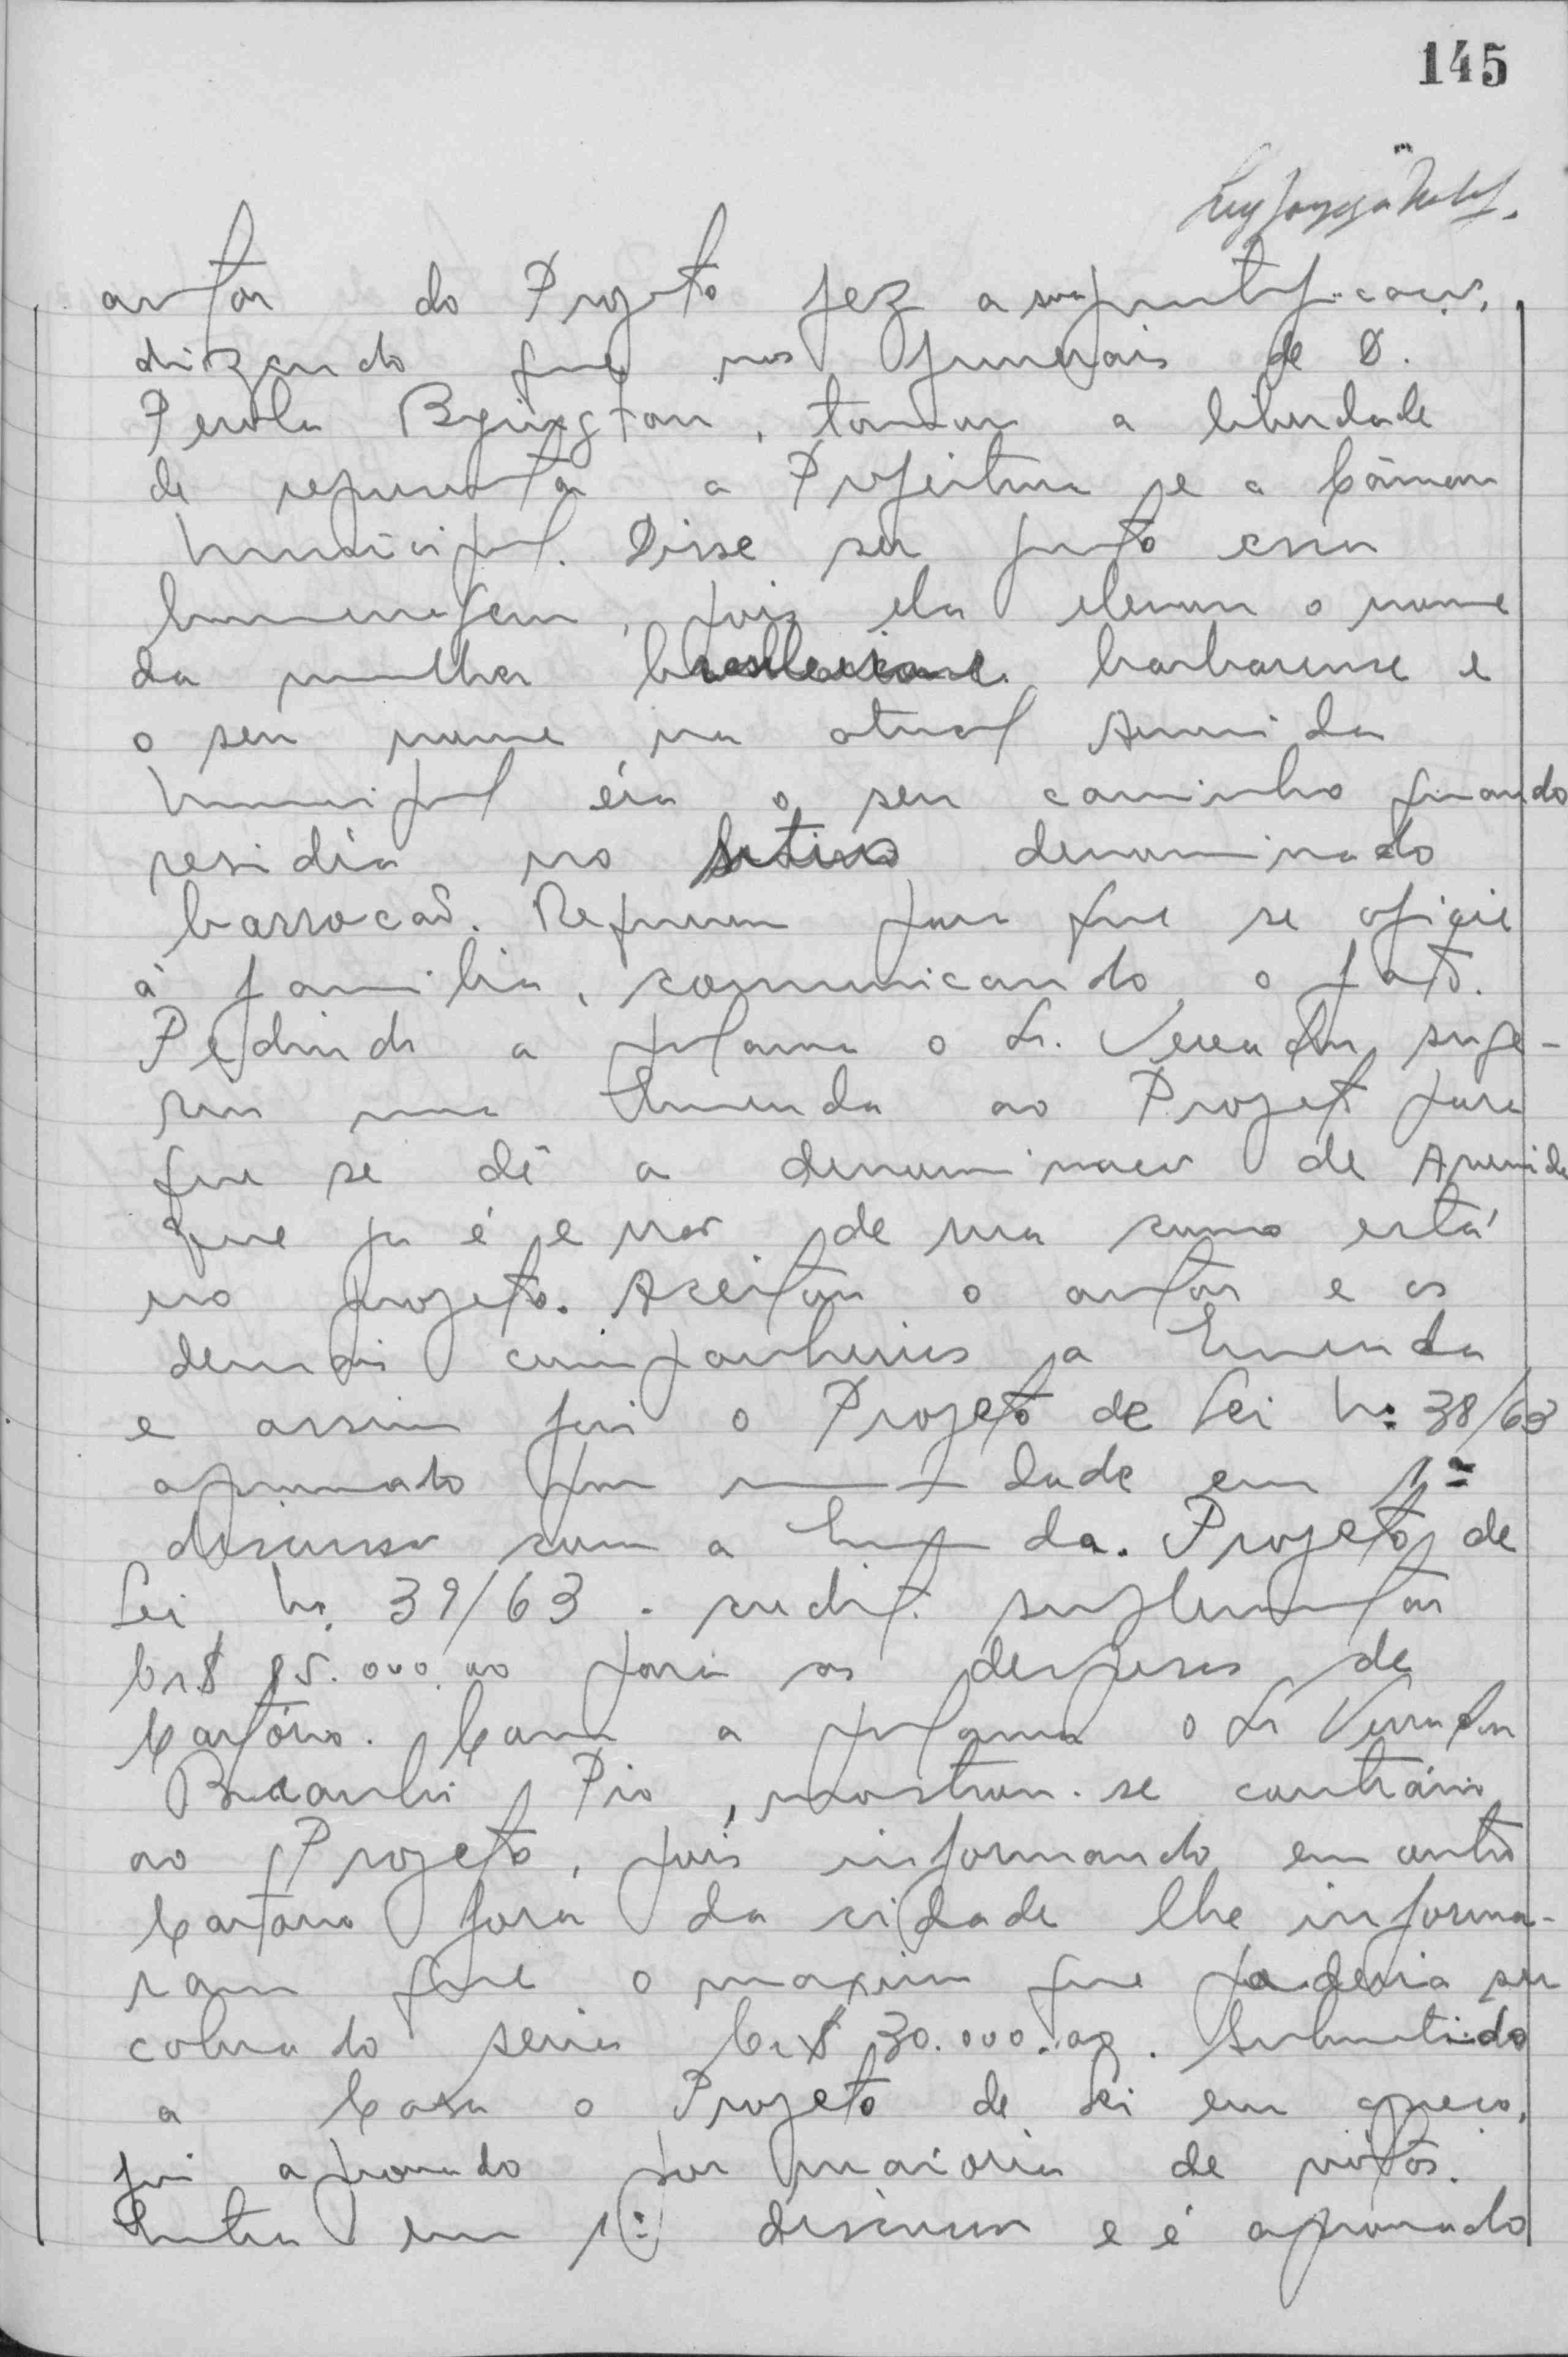 145
autor do Projeto fez a sua justificação,
dizendo que nos funerais de D.
Perola Byington, tomou a liberdade
de representar a Prefeitura e a Câmara
Municipal. Disse ser justo essa
homenagem, pois ela elevou o nome
da mulher barbarense e
o seu nome na atual Avenida
Municipal éra o seu caminho quando
residia no sitio denominado
barrocão. Requereu para que se oficie
á familia, comunicando o fato.
Pedindo a palavra o Sr. Vereador suge-
riu uma Emenda ao Projeto para
que se dê a denominação de Avenida
que ja é e não de rua como está
no projeto. Aceitou o autor e os
demais companheiros a Emenda
e assim foi o Projeto de Lei Nº 38/63
aprovado por unanimidade em 1ª
discussão com a Emenda. Projeto de
Lei Nº 39/63 - credito suplementar
Cr$ 85.000,00 para as despesas de
Cartório. Com a palavra o Sr Vereador
Pio, mostrou-se contrário
ao Projeto, pois informando em outro
Cartório fora da cidade lhe informa-
ram que o maximo que poderia ser
cobrado seria Cr$ 30.000,00. Submetido
a Casa o Projeto de Lei em apreço,
foi aprovado por maioria de vótos.
Entra em 1ª discussão e é aprovado